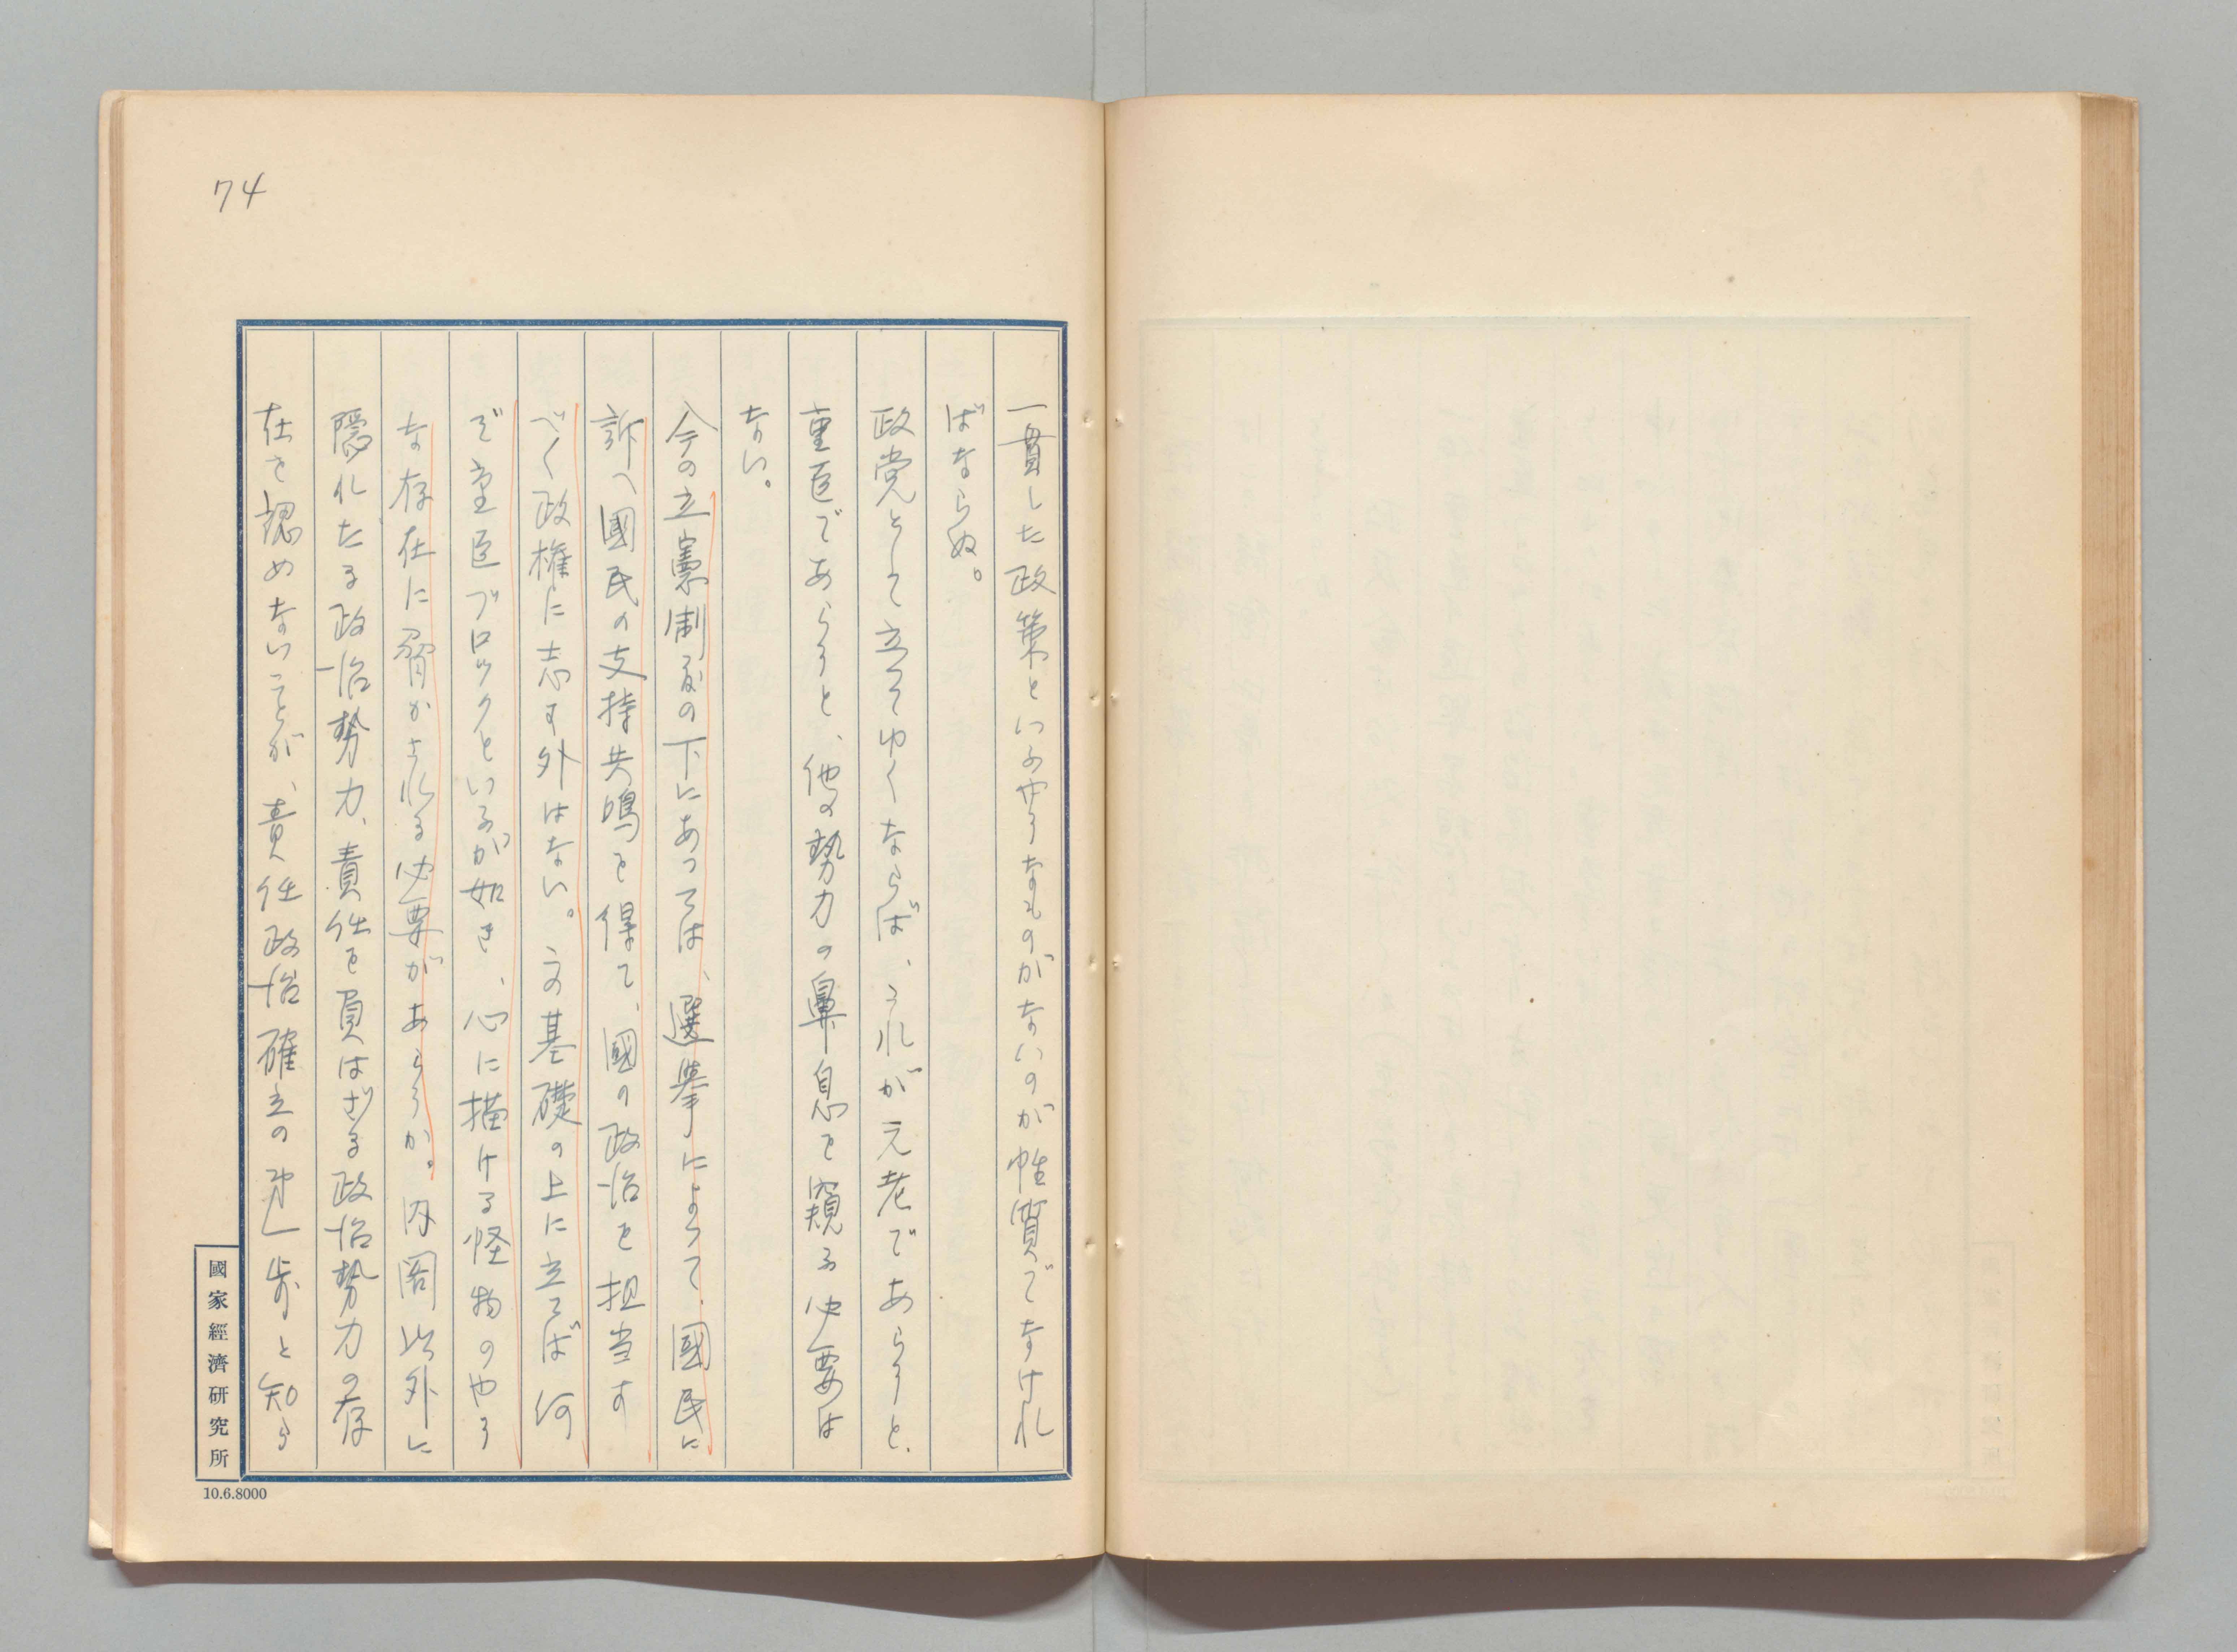 74
一貫した政策といふやうなものがないのが性質でなけれ
ばならぬ。
政党として立つてゆくならば、それが元老であらうと、
重臣であらうと、他の勢力の鼻息を窺ふ必要は
ない。
今の立憲制度の下にあつては、選挙によつて、國民に
訴へ國民の支持共鳴を得て、國の政治を担当す
べく政権に志す外はない。その基礎の上に立てば何
ぞ重臣ブロックといふが如き、心に描ける怪物のやう
な存在に脅かされる必要があらうか。内閣以外に
隠れたる政治勢力、責任を負はざる政治勢力の存
在を認めないことが、責任政治確立の第一歩と知ら
國家經濟研究所
10.6.8000